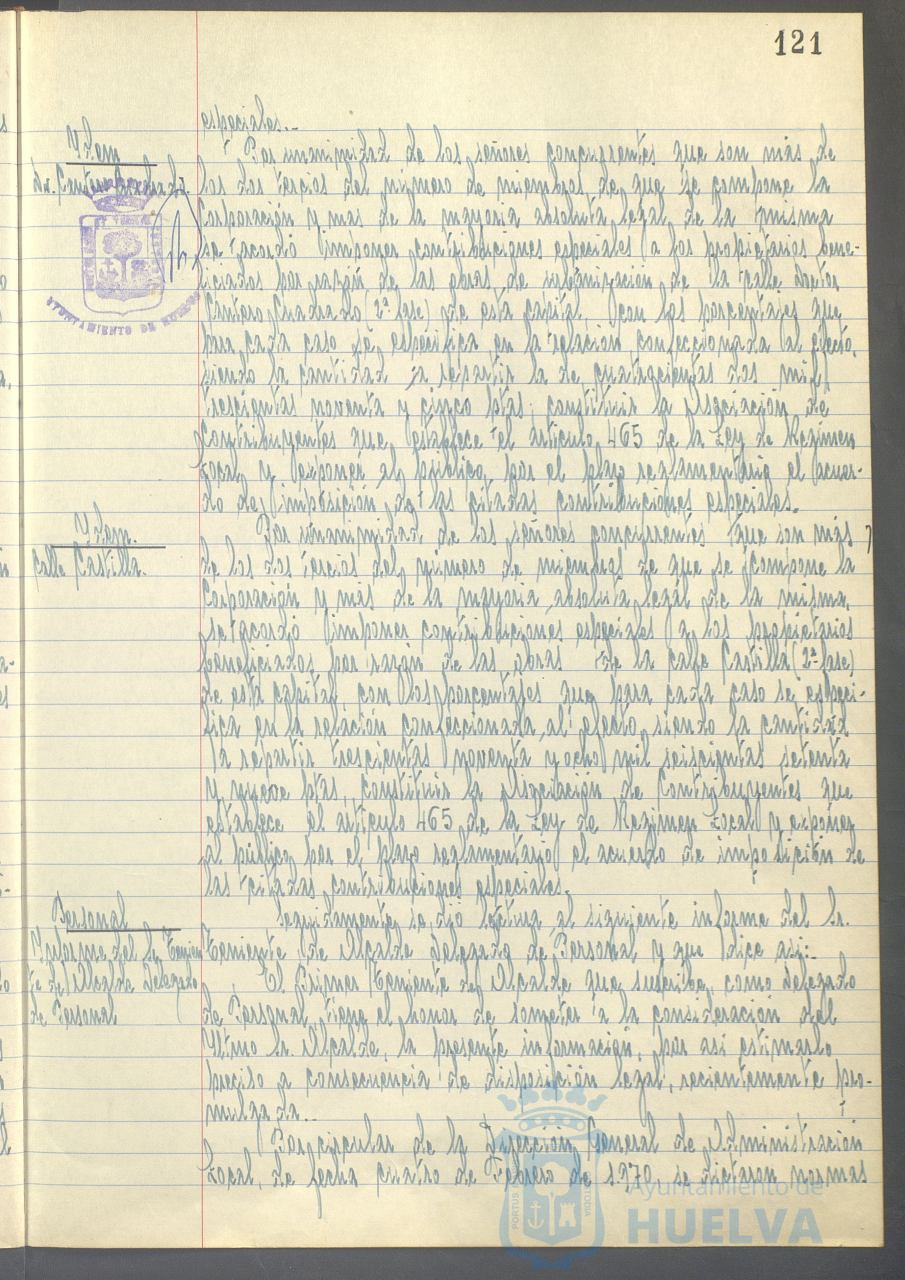 121
especiales.-
Idem
Dr. Cantero Cuadrado.
Por unanimidad de los señores concurrentes que son más de
los dos tercios del número de miembros de que se compone la
Corporación y mas de la mayoria absoluta legal de la misma
se acordó imponer contribuciones especiales a los propietarios bene-
ficiados por razón de las obras de urbanización de la calle Doctor
Cantero Cuadrado (2ª fase) de esta capital con los porcentajes que
para cada caso se especifica en la relación confeccionada al efecto,
siendo la cantidad a repartir la de cuatrocientas dos mil
trescientas noventa y cinco ptas, constituir la Asociación de
Contribuyentes que establece el artículo 465 de la Ley de Regimen
Local y exponer al público por el plazo reglamentario el acuer-
do de imposición de las citadas contribuciones especiales.
Idem.
Calle Castilla.
Por unanimidad de los señores concurrentes que son más
de los dos tercios del número de miembros de que se compone la
Corporación y más de la mayoria absoluta legal de la misma,
se acordó imponer contribuciones especiales a los propietarios
beneficiados por razón de las obras de la calle Castilla (2ª fase)
de esta capital, con los porcentajes que para cada caso se especi-
fica en la relación confeccionada al efecto, siendo la cantidad
a repartir trescientas noventa y ocho mil seiscientas setenta
y nueve ptas, constituir la Asociación de Contribuyentes que
establece el artículo 465 de la Ley de Regimen Local y exponer
al público por el plazo reglamentario el acuerdo de imposición de
las citadas contribuciones especiales.
Personal
Informe del Sr. Tenien
te de Alcalde Delegado
de Personal
Seguidamente se dió lectura al siguiente informe del Sr.
Teniente de Alcalde delegado de Personal y que dice asi:
El Primer Teniente de Alcalde que suscribe, como delegado
de Personal, tiene el honor de someter a la consideración del
Iltmo Sr. Alcalde, la presente información, por asi estimarlo
preciso a consecuencia de disposición legal, recientemente pro-
mulgada..
Por circular de la Dirección General de Administración
Local, de fecha cuatro de Febrero de 1.970, se dictaron normas
AYUNTAMIENTO DE HUELVA
Ayuntamiento de
HUELVA